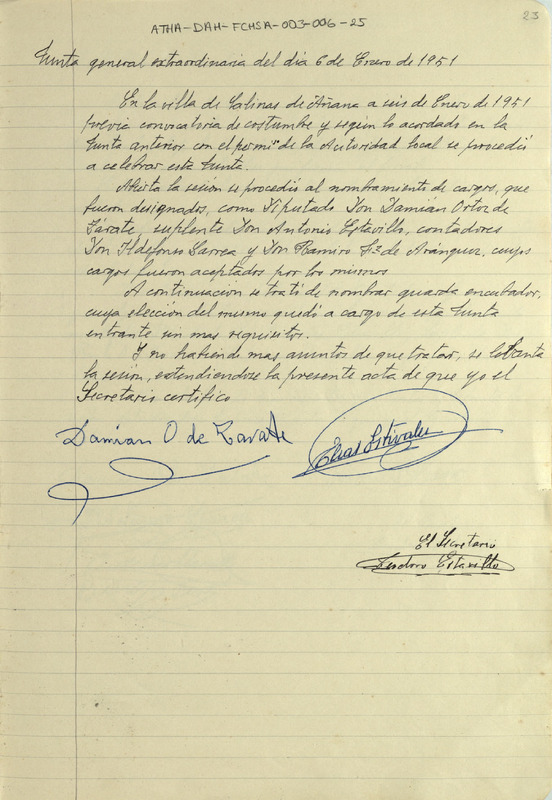 23
ATHA-DAH-FCHSA-003-006-25
Junta general extraordinaria del dia 6 de Enero de 1951
En la villa de Salinas de Añana a seis de Enero de 1951
previa convocatoria de costumbre y según lo acordado en la
Junta anterior con el permiso de la Autoridad local se procedió
a celebrar esta Junta.
Abierta la sesión se procedió al nombramiento de cargos, que
fueron designados, como Diputado Don Damián Ortiz de
Zárate, suplente Don Antonio Estavillo, contadores
Don Ildefonso Larrea y Don Ramiro Fz de Aránguiz, cuyos
cargos fueron aceptados por los mismos
A continuación se trató de nombrar guarda encubador,
cuya elección del mismo quedó a cargo de esta Junta
entrante sin mas requisitos.
Y no habiendo mas asuntos de que tratar, se levanta
la sesión, extendiendose la presente acta de que yo el
Secretario certifico
Damian O de Zarate
Elias
El Secretario
Teodoro Estavillo